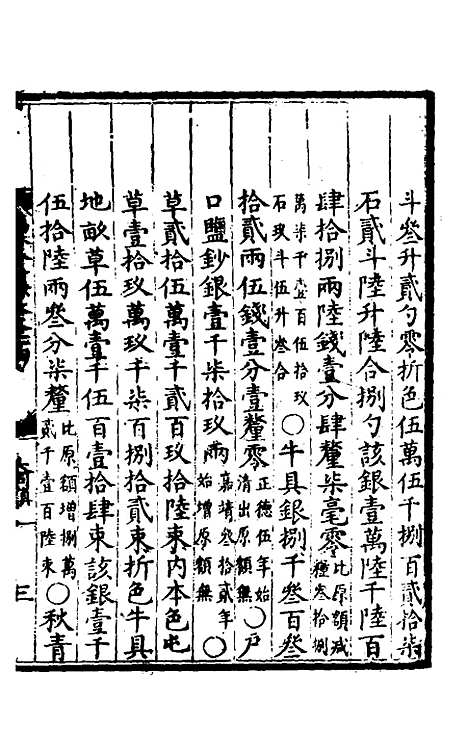 斗叁升貳勺零折色伍萬伍千捌百貳拾柒
石貳斗陸升陸合捌勺該銀壹萬陸千陸百
肆拾捌兩陸錢壹分肆釐柒毫零比原額減種叁拾捌
萬柒千壹百伍拾玖石玖斗伍升叁合〇牛具銀捌千叁百叁
拾貳兩伍錢壹分壹釐零正德伍年始清出原額無〇戶
口鹽鈔銀壹千柒拾玖兩嘉靖叁拾貳年始增原額無〇
草貳拾伍萬壹千貳百玖拾陸束内本色屯
草壹拾玖萬玖千柒百捌拾貳束折色牛具
地畝草伍萬壹千伍百壹拾肆束該銀壹千
伍拾陸兩叁分柒釐比原額增捌萬貳千壹百陸束〇秋青
三